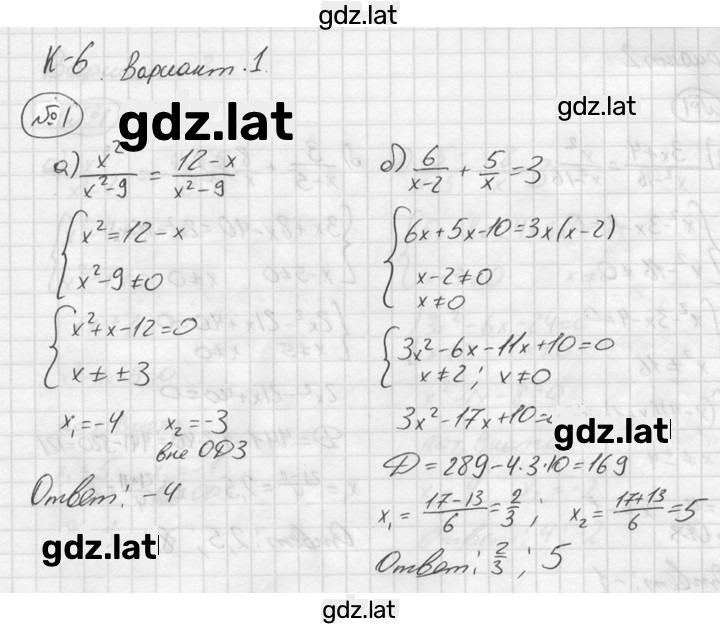 gdz.lat
К-6. Вариант.1.
gdz.lat
№1
gdz.lat
а) x²/(x²-9) = (12-x)/(x²-9)
{ x²=12-x
x²-9≠0
{ x²+x-12=0
x≠±3
x₁=-4 x₂=-3
вне ОДЗ
Ответ: -4
gdz.lat
б) 6/(x-2) + 5/x = 3
{ 6x+5x-10=3x(x-2)
x-2≠0
x≠0
{ 3x²-6x-11x+10=0
x≠2; x≠0
3x²-17x+10=
gdz.lat
D=289-4.3.10=169
x₁ = (17-13)/6 = 2/3 ; x₂ = (17+13)/6 = 5
Ответ: 2/3 ; 5
gdz.lat